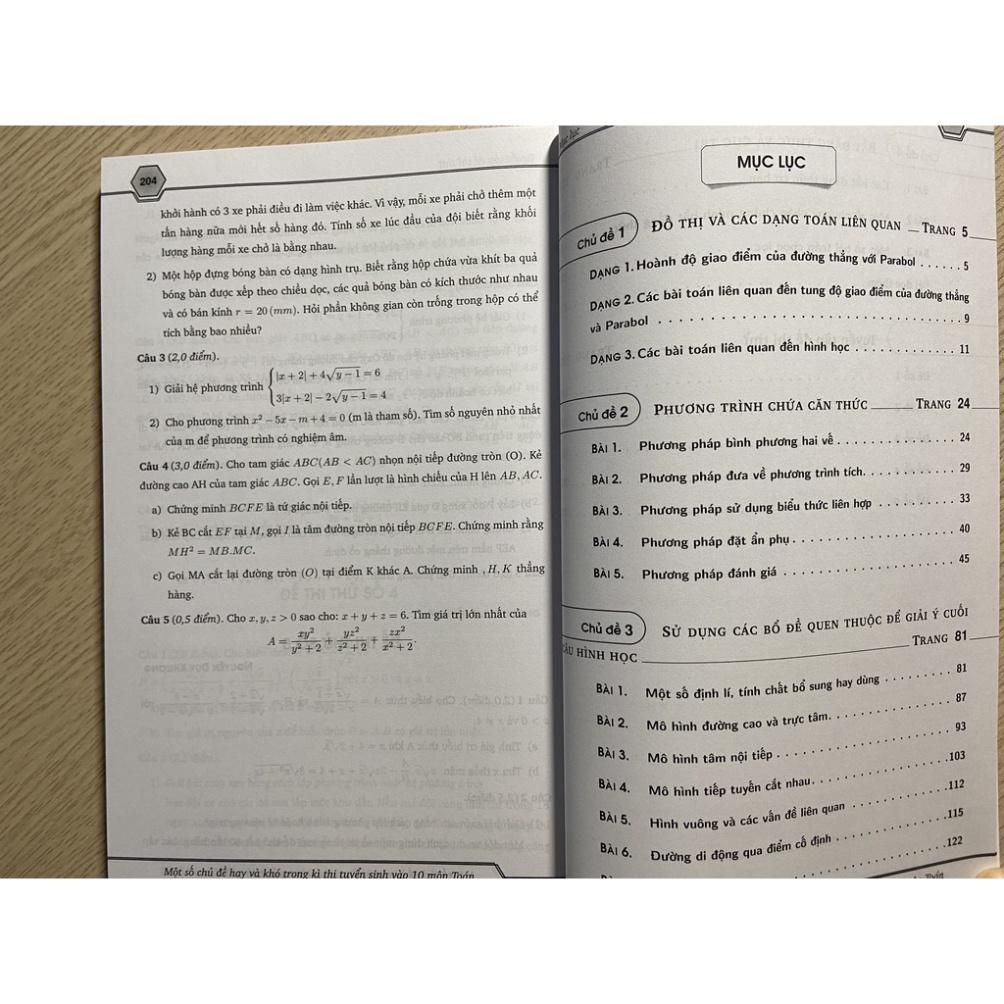 204
khởi hành có 3 xe phải điều đi làm việc khác. Vì vậy, mỗi xe phải chở thêm một
tấn hàng nữa mới hết số hàng đó. Tính số xe lúc đầu của đội biết rằng khối
lượng hàng mỗi xe chở là bằng nhau.
2) Một hộp đựng bóng bàn có dạng hình trụ. Biết rằng hộp chứa vừa khít ba quả
bóng bàn được xếp theo chiều dọc, các quả bóng bàn có kích thước như nhau
và có bán kính r = 20 (mm). Hỏi phần không gian còn trống trong hộp có thể
tích bằng bao nhiêu?
Câu 3 (2,0 điểm).
1) Giải hệ phương trình { |x + 2| + 4√(y − 1) = 6
3|x + 2| − 2√(y − 1) = 4
2) Cho phương trình x² − 5x − m + 4 = 0 (m là tham số). Tìm số nguyên nhỏ nhất
của m để phương trình có nghiệm âm.
Câu 4 (3,0 điểm). Cho tam giác ABC(AB < AC) nhọn nội tiếp đường tròn (O). Kẻ
đường cao AH của tam giác ABC. Gọi E, F lần lượt là hình chiếu của H lên AB, AC.
a) Chứng minh BCFE là tứ giác nội tiếp.
b) Kẻ BC cắt EF tại M, gọi I là tâm đường tròn nội tiếp BCFE. Chứng minh rằng
MH² = MB.MC.
c) Gọi MA cắt lại đường tròn (O) tại điểm K khác A. Chứng minh , H, K thẳng
hàng.
Câu 5 (0,5 điểm). Cho x, y, z > 0 sao cho: x + y + z = 6. Tìm giá trị lớn nhất của
A = xy²/(y² + 2) + yz²/(z² + 2) + zx²/(x² + 2).
Một số chủ đề hay và khó trong kì thi tuyển sinh vào 10 môn Toán
MỤC LỤC
Chủ đề 1 ĐỒ THỊ VÀ CÁC DẠNG TOÁN LIÊN QUAN TRANG 5
DẠNG 1. Hoành độ giao điểm của đường thẳng với Parabol . . . . . . 5
DẠNG 2. Các bài toán liên quan đến tung độ giao điểm của đường thẳng
và Parabol . . . . . . . . . . 9
DẠNG 3. Các bài toán liên quan đến hình học . . . . . . . . . . 11
Chủ đề 2 PHƯƠNG TRÌNH CHỨA CĂN THỨC TRANG 24
BÀI 1. Phương pháp bình phương hai vế . . . . . . . . . . 24
BÀI 2. Phương pháp đưa về phương trình tích. . . . . . . . . . 29
BÀI 3. Phương pháp sử dụng biểu thức liên hợp . . . . . . . . 33
BÀI 4. Phương pháp đặt ẩn phụ. . . . . . . . . . 40
BÀI 5. Phương pháp đánh giá . . . . . . . . . . 45
Chủ đề 3 SỬ DỤNG CÁC BỔ ĐỀ QUEN THUỘC ĐỂ GIẢI Ý CUỐI
HÌNH HỌC TRANG 81
BÀI 1. Một số định lí, tính chất bổ sung hay dùng . . . . . . . . 81
BÀI 2. Mô hình đường cao và trực tâm. . . . . . . . . . 87
BÀI 3. Mô hình tâm nội tiếp . . . . . . . . . . 93
BÀI 4. Mô hình tiếp tuyến cắt nhau. . . . . . . . . . 103
BÀI 5. Hình vuông và các vấn đề liên quan . . . . . . . . 112
BÀI 6. Đường di động qua điểm cố định . . . . . . . . 115
. . . . . . . . 122